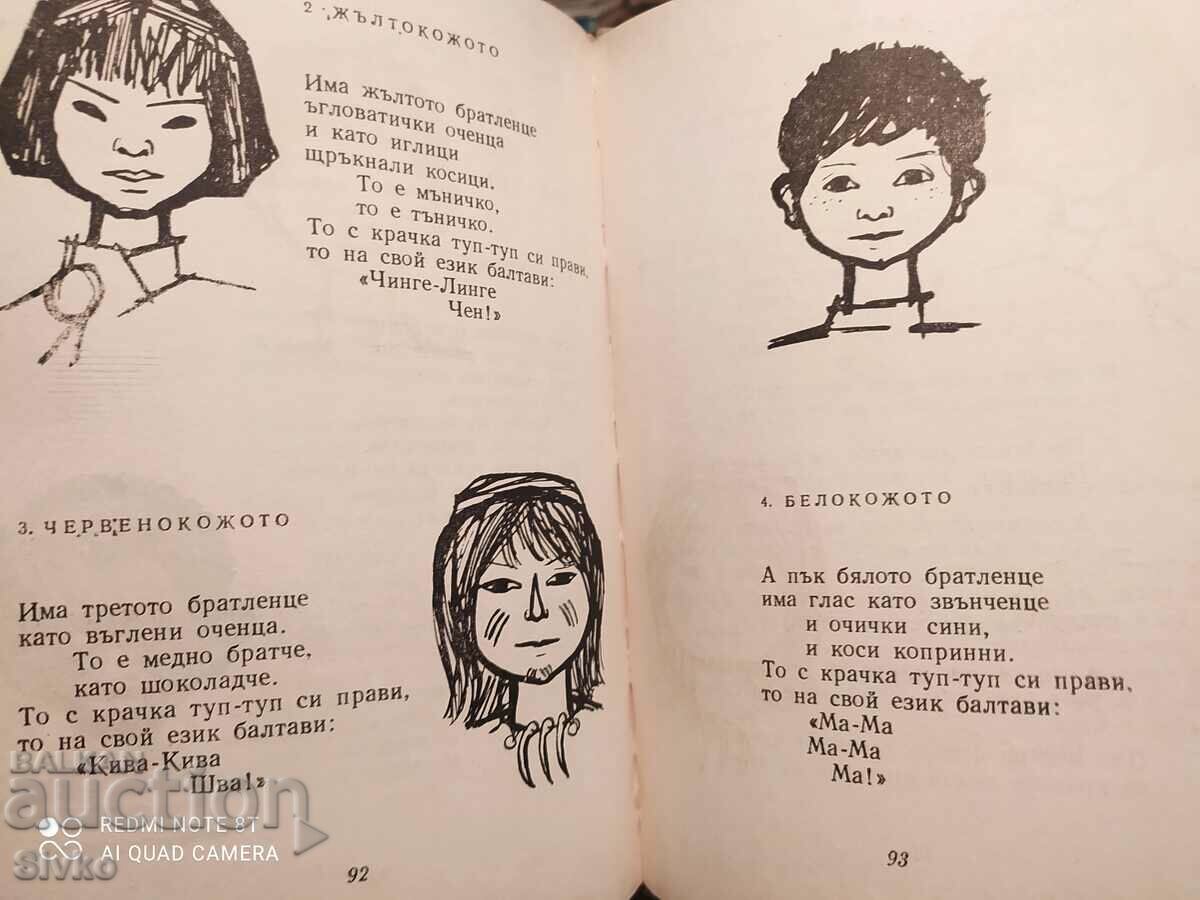 2. ЖЪЛТОКОЖОТО
Има жълтото братленце
ъгловатички оченца
и като иглици
щръкнали косици.
То е мъничко,
то е тъничко.
То с крачка туп-туп си прави,
то на свой език балтави:
«Чинге-Линге
Чен!»
3. ЧЕРВЕНОКОЖОТО
Има третото братленце
като въглени оченца.
То е медно братче,
като шоколадче.
То с крачка туп-туп си прави,
то на свой език балтави:
«Кива-Кива
Шва!»
92
4. БЕЛОКОЖОТО
А пък бялото братленце
има глас като звънченце
и очички сини,
и коси копринни.
То с крачка туп-туп си прави,
то на свой език балтави:
«Ма-Ма
Ма-Ма
Ма!»
93
BALKAN
auction
REDMI NOTE 8T
AI QUAD CAMERA
sivko